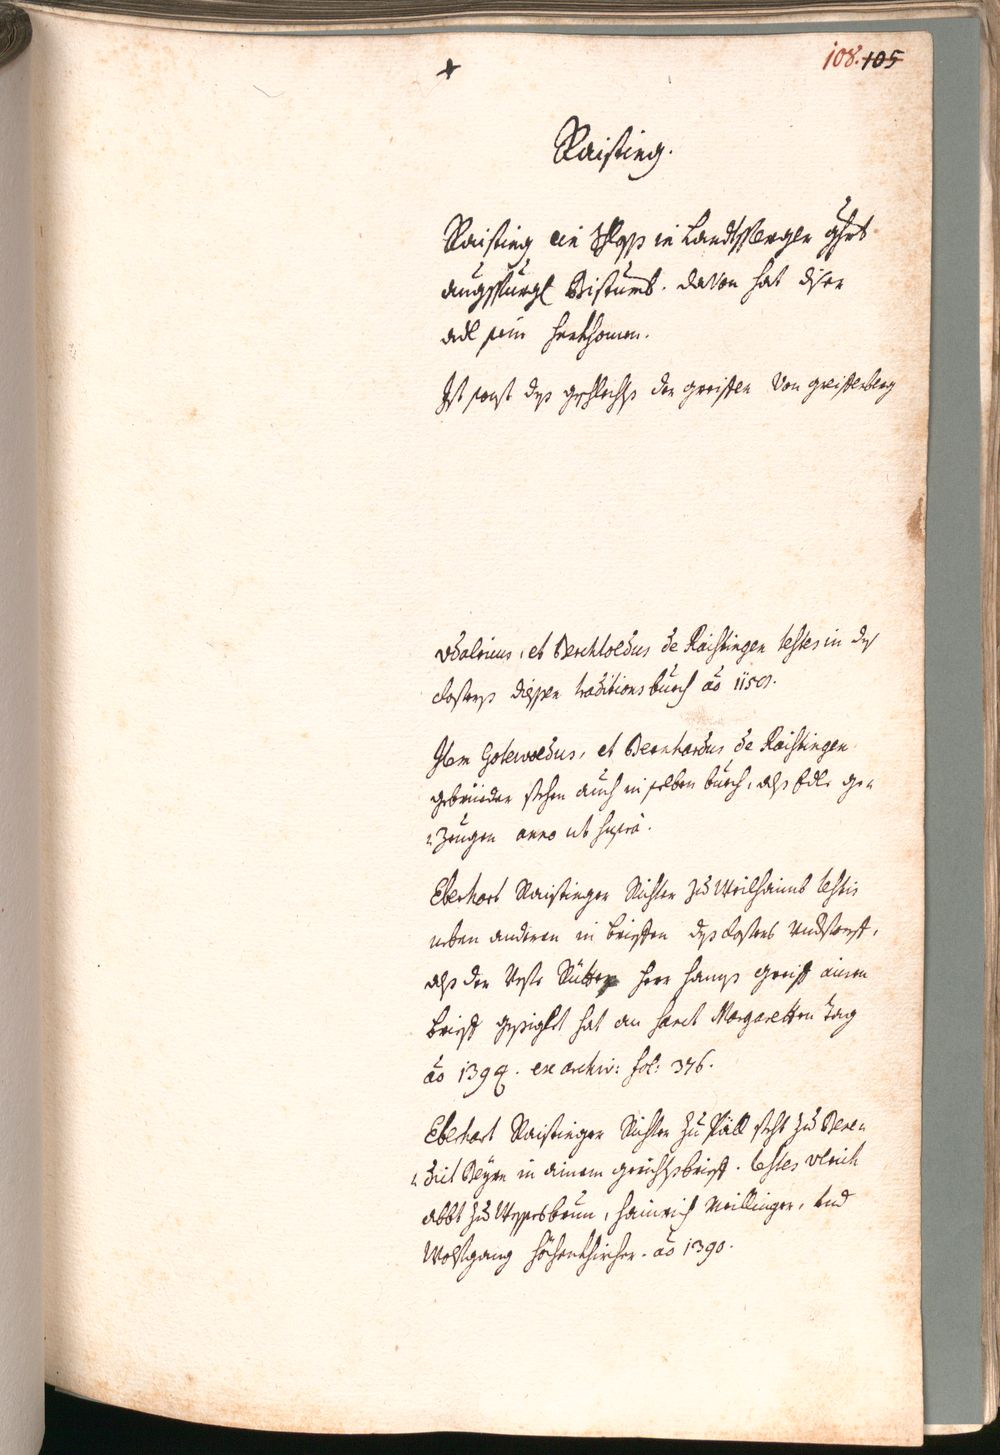 108. 105
Raisting.
Raisting ein Schloss in Landtsperger ghrt
augspurgl Bistumb. davon hat diser
adl sein herkhomen.
Ist sonst dess geschlechts der greiffen von greiffenberg
Vdalricus, et Berchtoldus de Raistingen testes in dess
closters diessen traditionsbuech ao 1150.
Item Goteuoldus, et Bernhardus de Raistingen
gebrüeder stehen auch in selben buech, alss Edle ge=
=Zeugen anno ut supra.
Eberhart Raistinger Richter zu Weilhaimb testis
neben anderen in brieffen dess closters Undstorff,
alss der Veste Ritter herr hanss greiff ainen
brieff gesiglet hat an sanct Margaretten Tag
ao 1394. ex archiv: fol: 376.
Eberhart Raistinger Richter zu Päll steht zu Bene=
=dict Beyrn in ainem gerichtsbrieff. testes vlrich
abbt zu Wessesbrun, hainrich Meillinger, und
Wolfgang höhenkhircher. ao 1390.